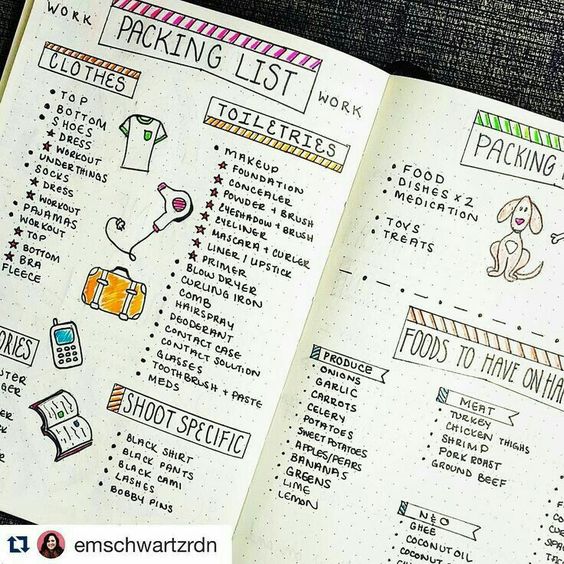 WORK
PACKING LIST
WORK
CLOTHES
TOP
BOTTOM
SHOES
DRESS
WORKOUT
UNDERTHINGS
SOCKS
DRESS
WORKOUT
PAJAMAS
WORKOUT
TOP
BOTTOM
BRA
FLEECE
TOILETRIES
MAKEUP
FOUNDATION
CONCEALER
POWDER + BRUSH
EYESHADOW + BRUSH
EYELINER
MASCARA + CURLER
LINER / LIPSTICK
PRIMER
BLOW DRYER
CURLING IRON
COMB
HAIRSPRAY
DEODERANT
CONTACT CASE
CONTACT SOLUTION
GLASSES
TOOTHBRUSH + PASTE
MEDS
ORIES
SHOOT SPECIFIC
BLACK SHIRT
BLACK PANTS
BLACK CAMI
LASHES
BOBBY PINS
PACKING
FOOD
DISHES x 2
MEDICATION
TOYS
TREATS
FOODS TO HAVE ON HA
PRODUCE
ONIONS
GARLIC
CARROTS
CELERY
POTATOES
SWEET POTATOES
APPLES/PEARS
BANANAS
GREENS
LIME
LEMON
MEAT
TURKEY
CHICKEN THIGHS
SHRIMP
PORK ROAST
GROUND BEEF
N&O
GHEE
COCONUT OIL
emschwartzrdn